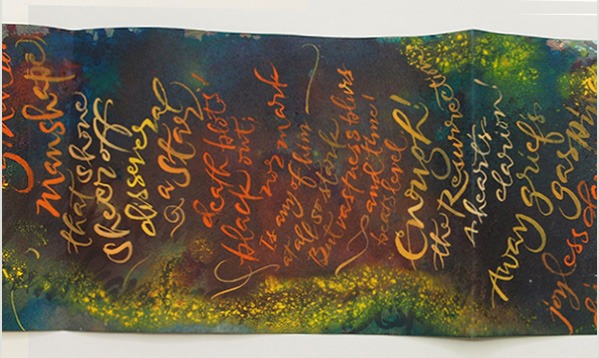 manshape,
that shone
sheer off
disseveral
a star,
death blots
black out;
nor mark
Is any of him
at all so stark
But vastness blurs
and time!
beats level
Enough!
the Resurrection
a hearts-
clarion!
Away grief's
gaspin
joyless